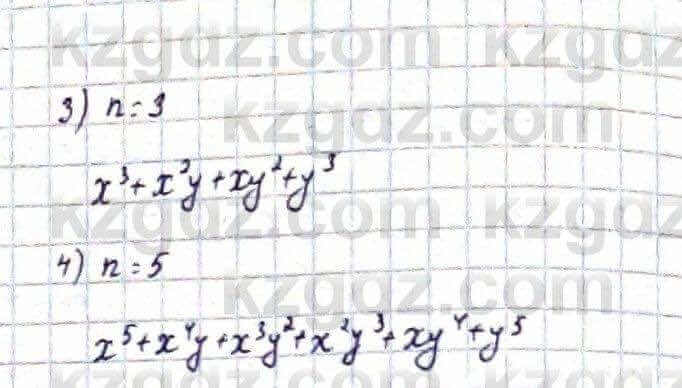 kzgdz.com kzgdz.com
3) n=3
kzgdz.com
x³+x²y+xy²+y³
kzgdz.com kzgdz.com
4) n=5
kzgdz.com
x⁵+x⁴y+x³y²+x²y³+xy⁴+y⁵
kzgdz.com kzgdz.com